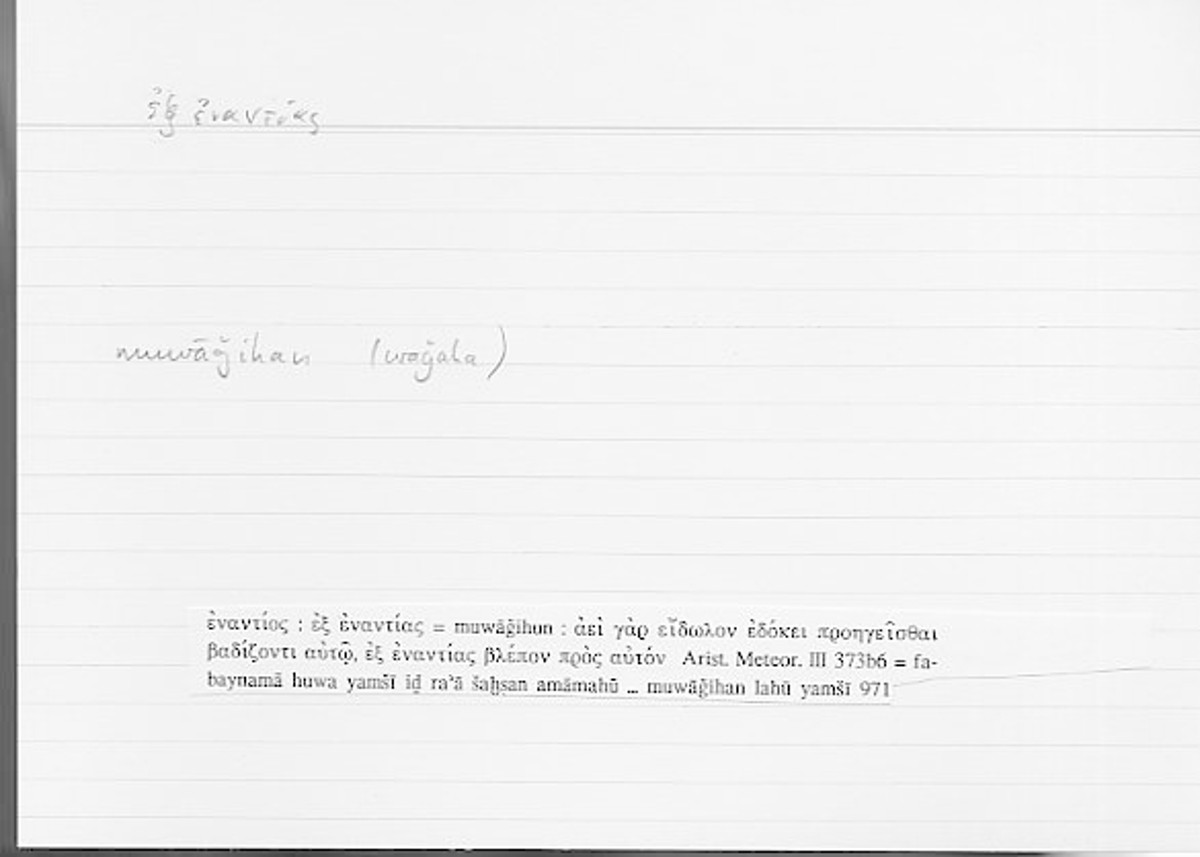 ἐξ ἐναντίας
muwāǧihan (waǧaha)
ἐναντίος : ἐξ ἐναντίας = muwāǧihun : ἀεὶ γὰρ εἴδωλον ἐδόκει προηγεῖσθαι
βαδίζοντι αὐτῷ, ἐξ ἐναντίας βλέπον πρὸς αὐτόν Arist. Meteor. III 373b6 = fa-
baynamā huwa yamšī iḏ raʾā šaḫsan amāmahū ... muwāǧihan lahū yamšī 971